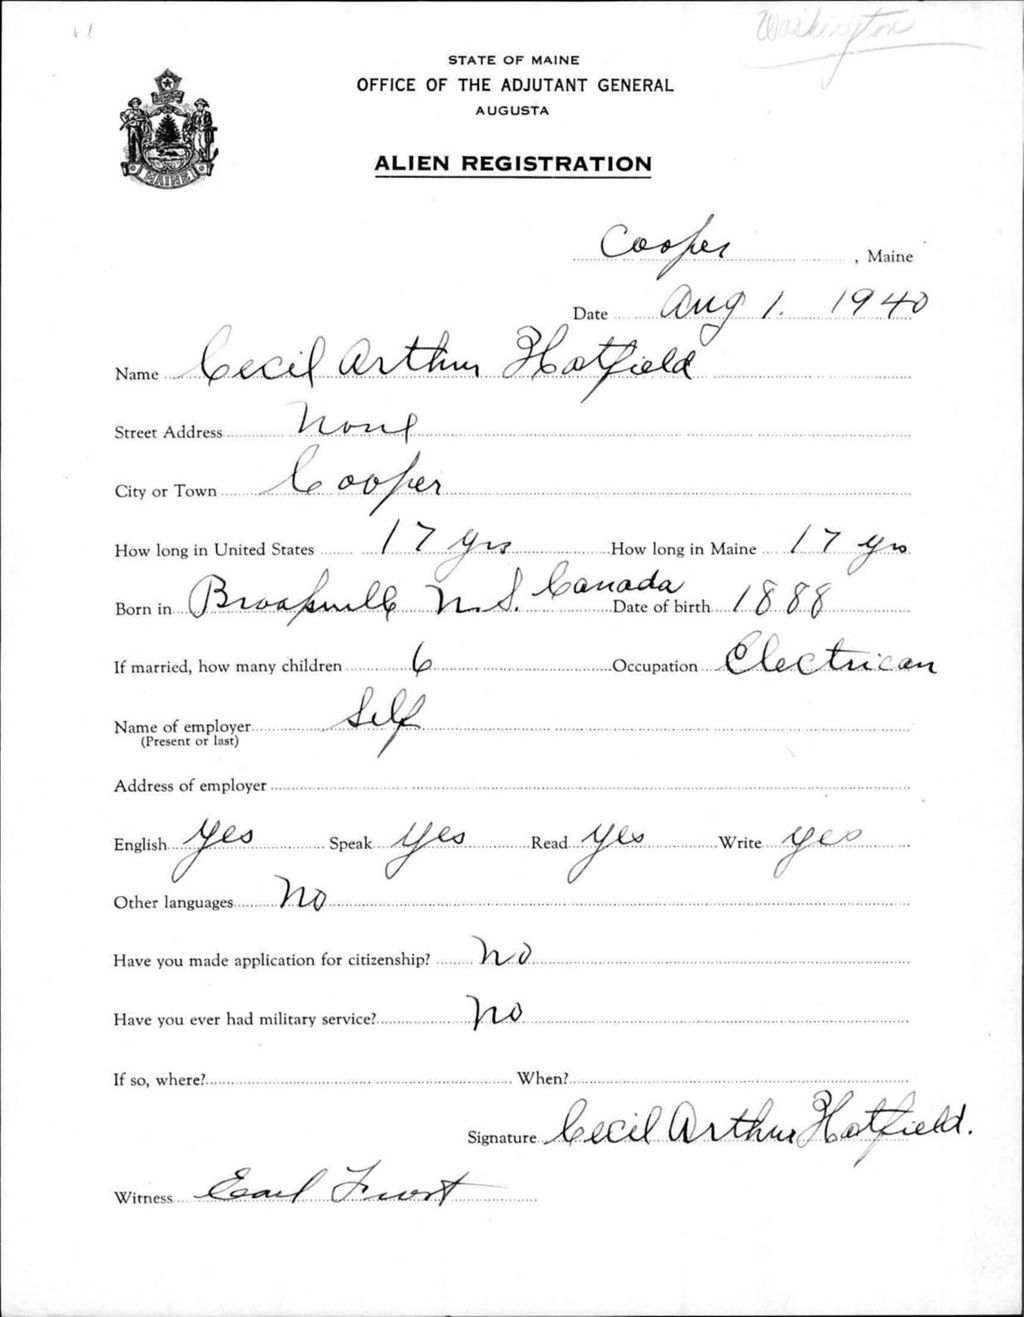 Washington
STATE OF MAINE
OFFICE OF THE ADJUTANT GENERAL
AUGUSTA
ALIEN REGISTRATION
MAINE
Cooper, Maine
Date Aug 1. 1940
Name Cecil Arthur Hatfield
Street Address None
City or Town Cooper
How long in United States 17 yrs How long in Maine 17 yrs
Born in N.S. Canada Date of birth 1888
If married, how many children 6 Occupation Electrican
Name of employer Self
(Present or last)
Address of employer
English yes Speak yes Read yes Write yes
Other languages No
Have you made application for citizenship? No
Have you ever had military service? No
If so, where? When?
Signature Cecil Arthur Hatfield.
Witness Earl Frost